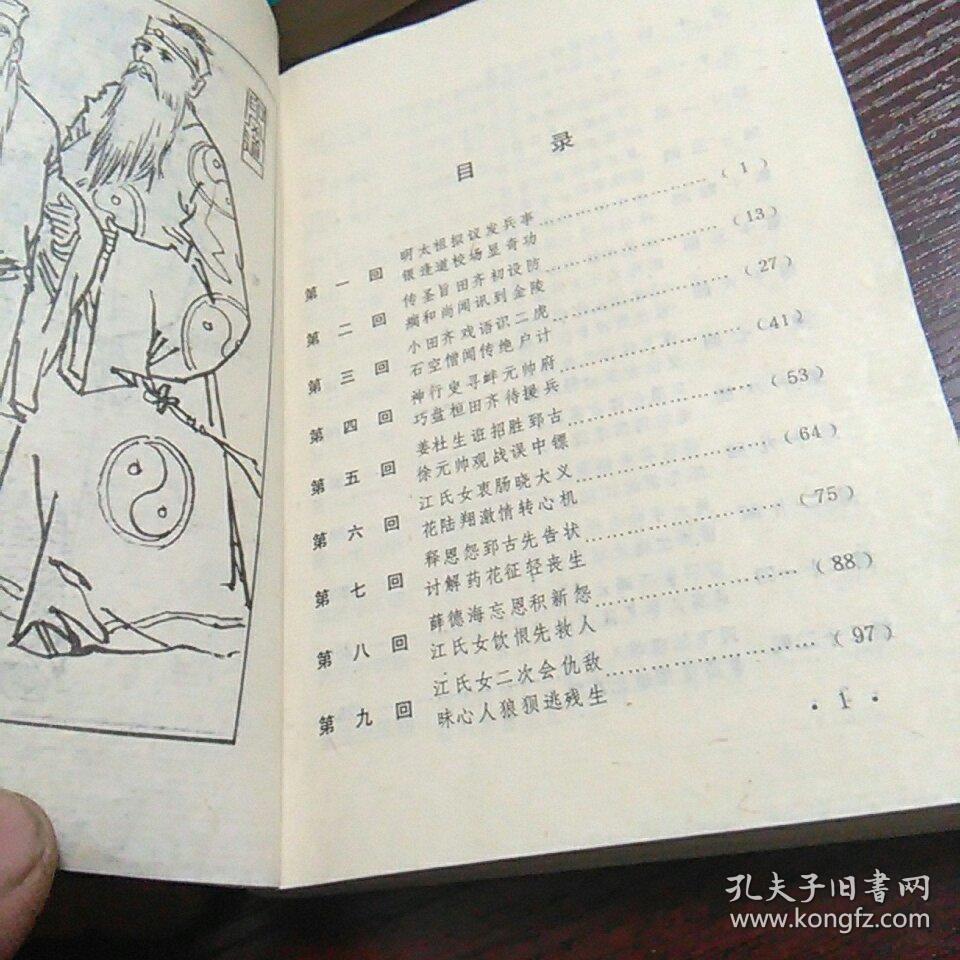 目 录
第一回 明太祖拟议发兵事……………………(1)
银逢道校场显奇功
第二回 传圣旨田齐初设防……………………(13)
癞和尚闻讯到金陵
第三回 小田齐戏语识二虎……………………(27)
石空僧闻传绝户计
第四回 神行叟寻衅元帅府……………………(41)
巧盘桓田齐待援兵
第五回 姜杜生诳招胜郅古……………………(53)
徐元帅观战误中镖
第六回 江氏女衷肠晓大义……………………(64)
花陆翔激情转心机
第七回 释恩怨郅古先告状……………………(75)
讨解药花征轻丧生
第八回 薛德海忘恩积新怨……………………(88)
江氏女饮恨先救人
第九回 江氏女二次会仇敌……………………(97)
昧心人狼狈逃残生
• 1 •
孔夫子旧书网
www.kongfz.com